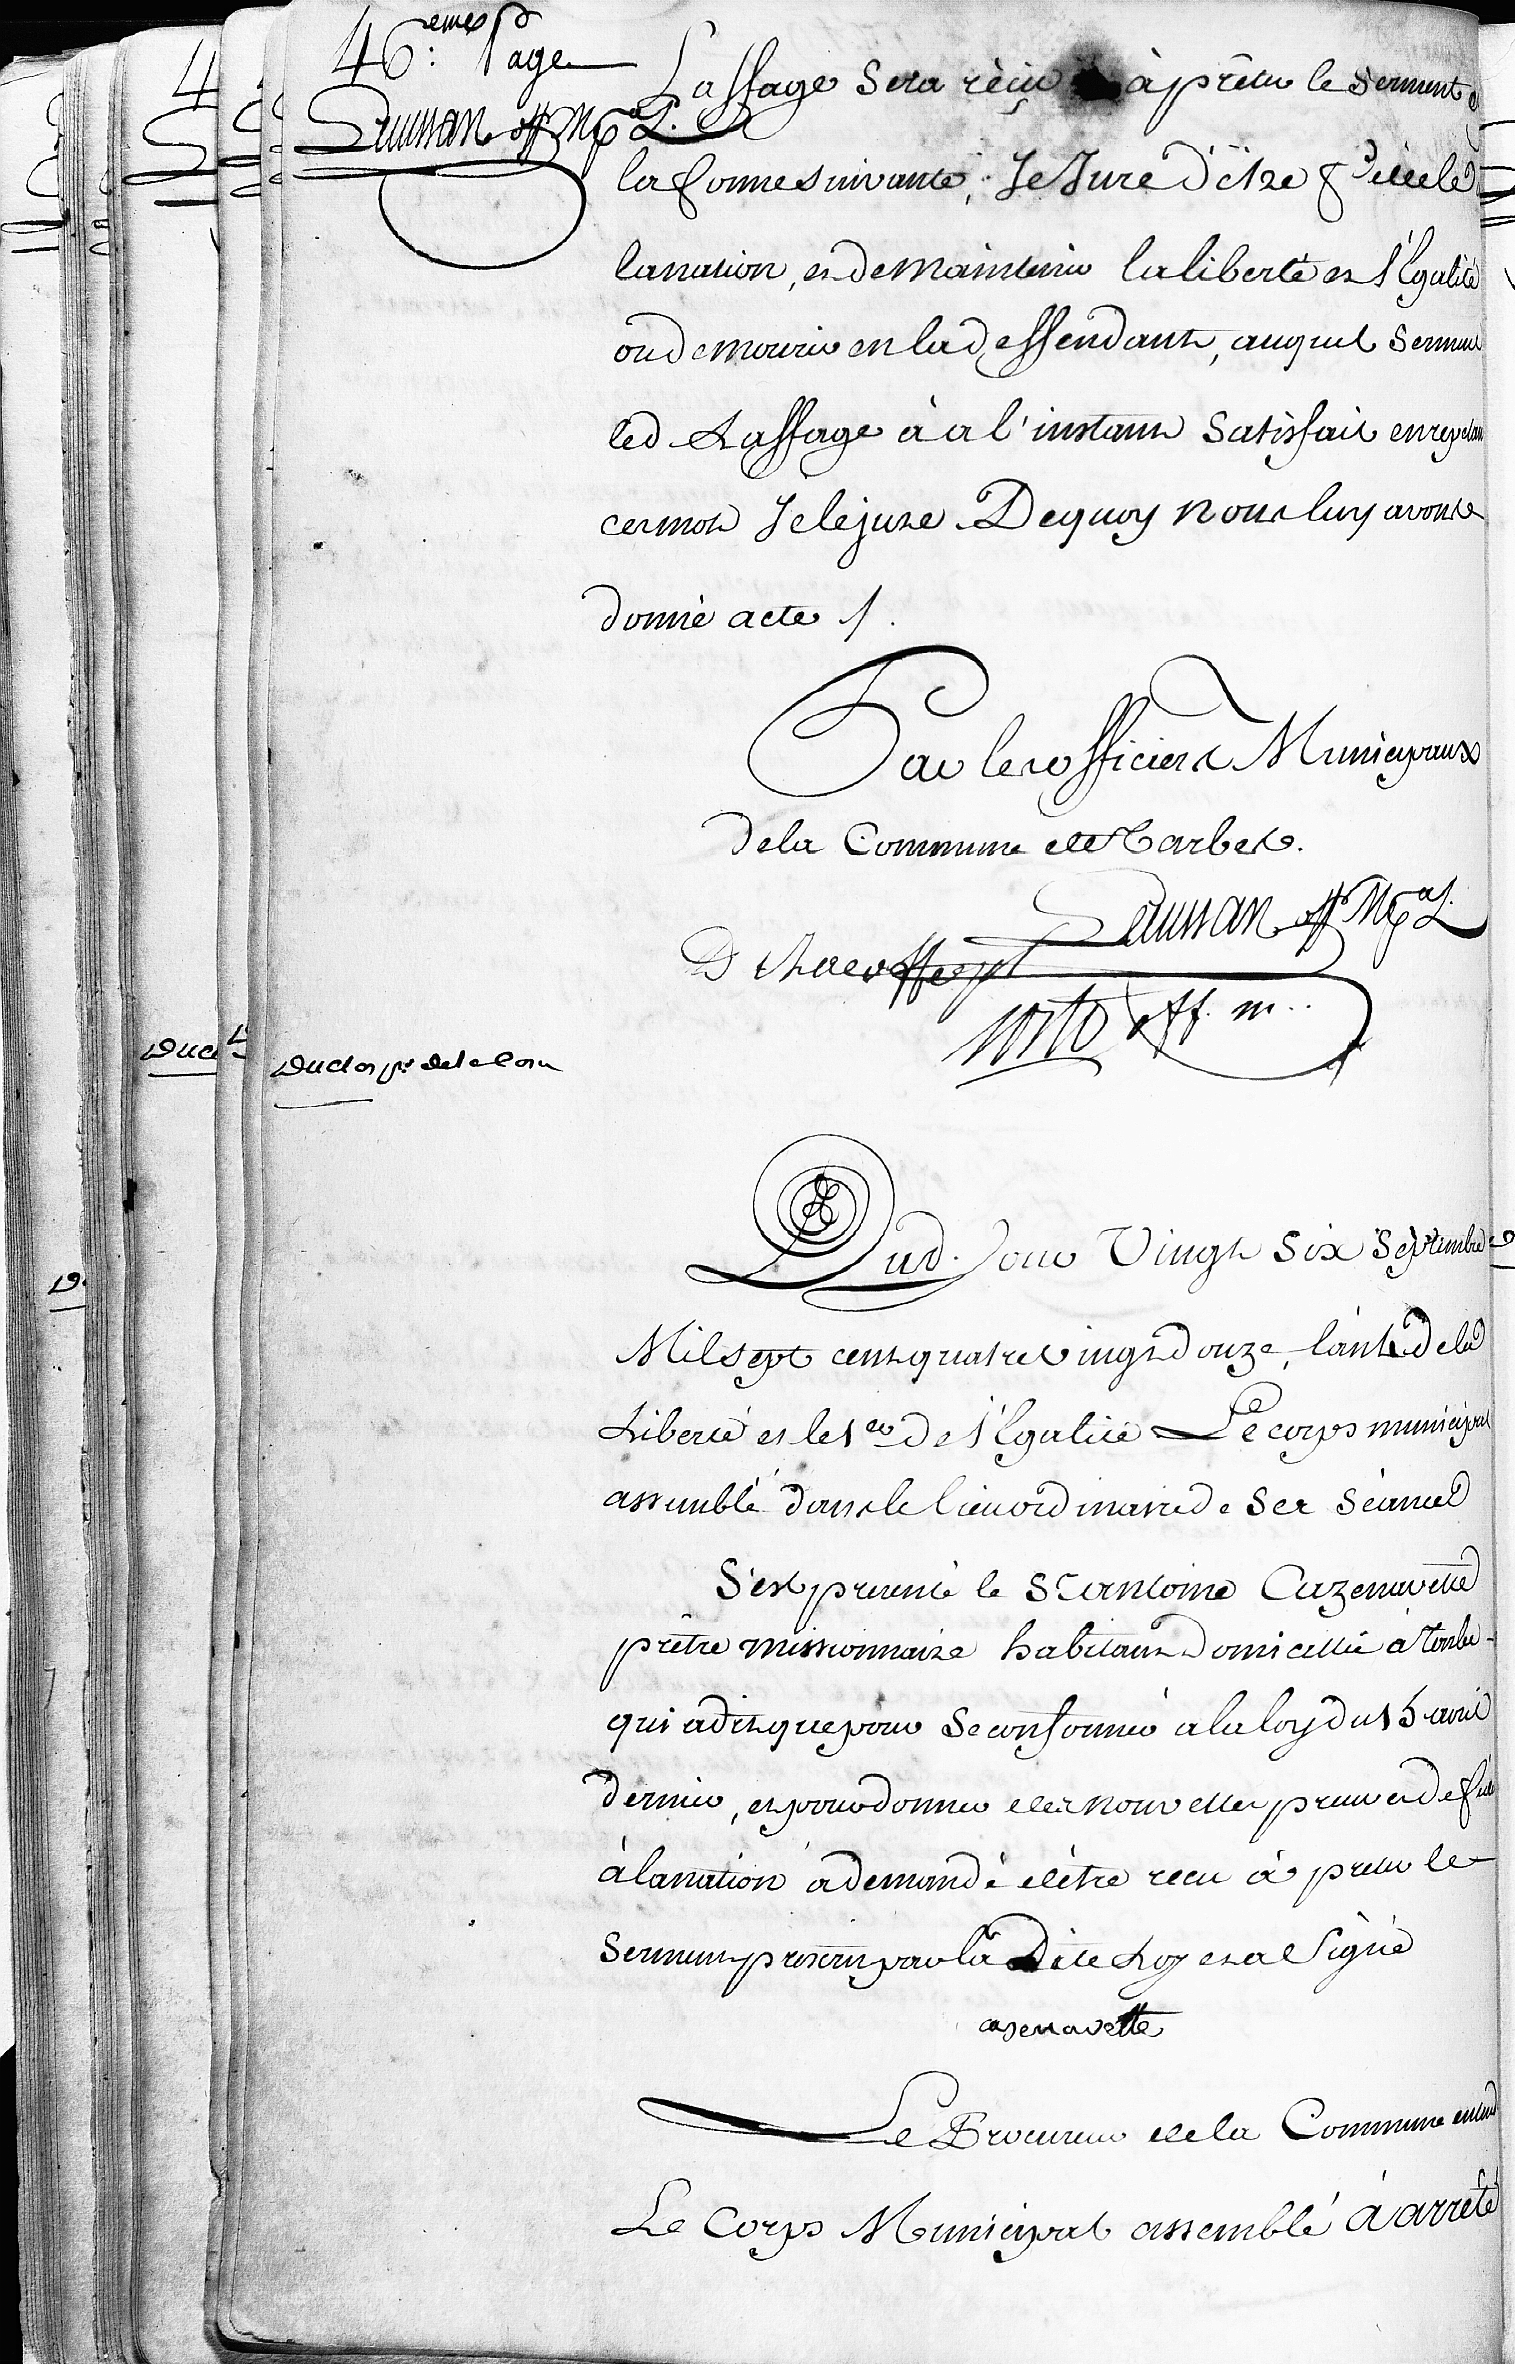 46.emes Page
Daunan off Mpal.
Laffage Sera reçu à prêter le Serment
la forme suivante, Je Jure d'être fidelle
la nation, et de maintenir la liberté et l'Egalité
ou de mourir en la deffendant, auquel Serment
led Laffage à a l'instant Satisfait en repetant
ces mots Je le jure De quoy nous luy avons
donné acte /.
Par les officiers Municipaux
de la Commune de Tarbes.
Daunan off Mpal
off. m..
Duclos pr de la Com
Dud. Jour Vingt Six Septembre
Mil sept cent quatre vingt douze, l'an 4e de la
Liberté et le 1er de l'Egalité Le corps municipal
assemblé dans le lieu ordinaire de Ses Séances
S'est presenté le Sr antoine Cazenavette
prêtre missionnaire habitant domicillié à tarbe
qui a dit que pour Se conformer a la loy du 15 avril
dernier, et pour donner des nouvelles preuves de
à la nation a demandé d'être recu à preter le
Serment prescrit par la Dite Loy et a Signé
casenavette
Le Procureur de la Commune entendu
Le Corps Municipal assemblé à arreté